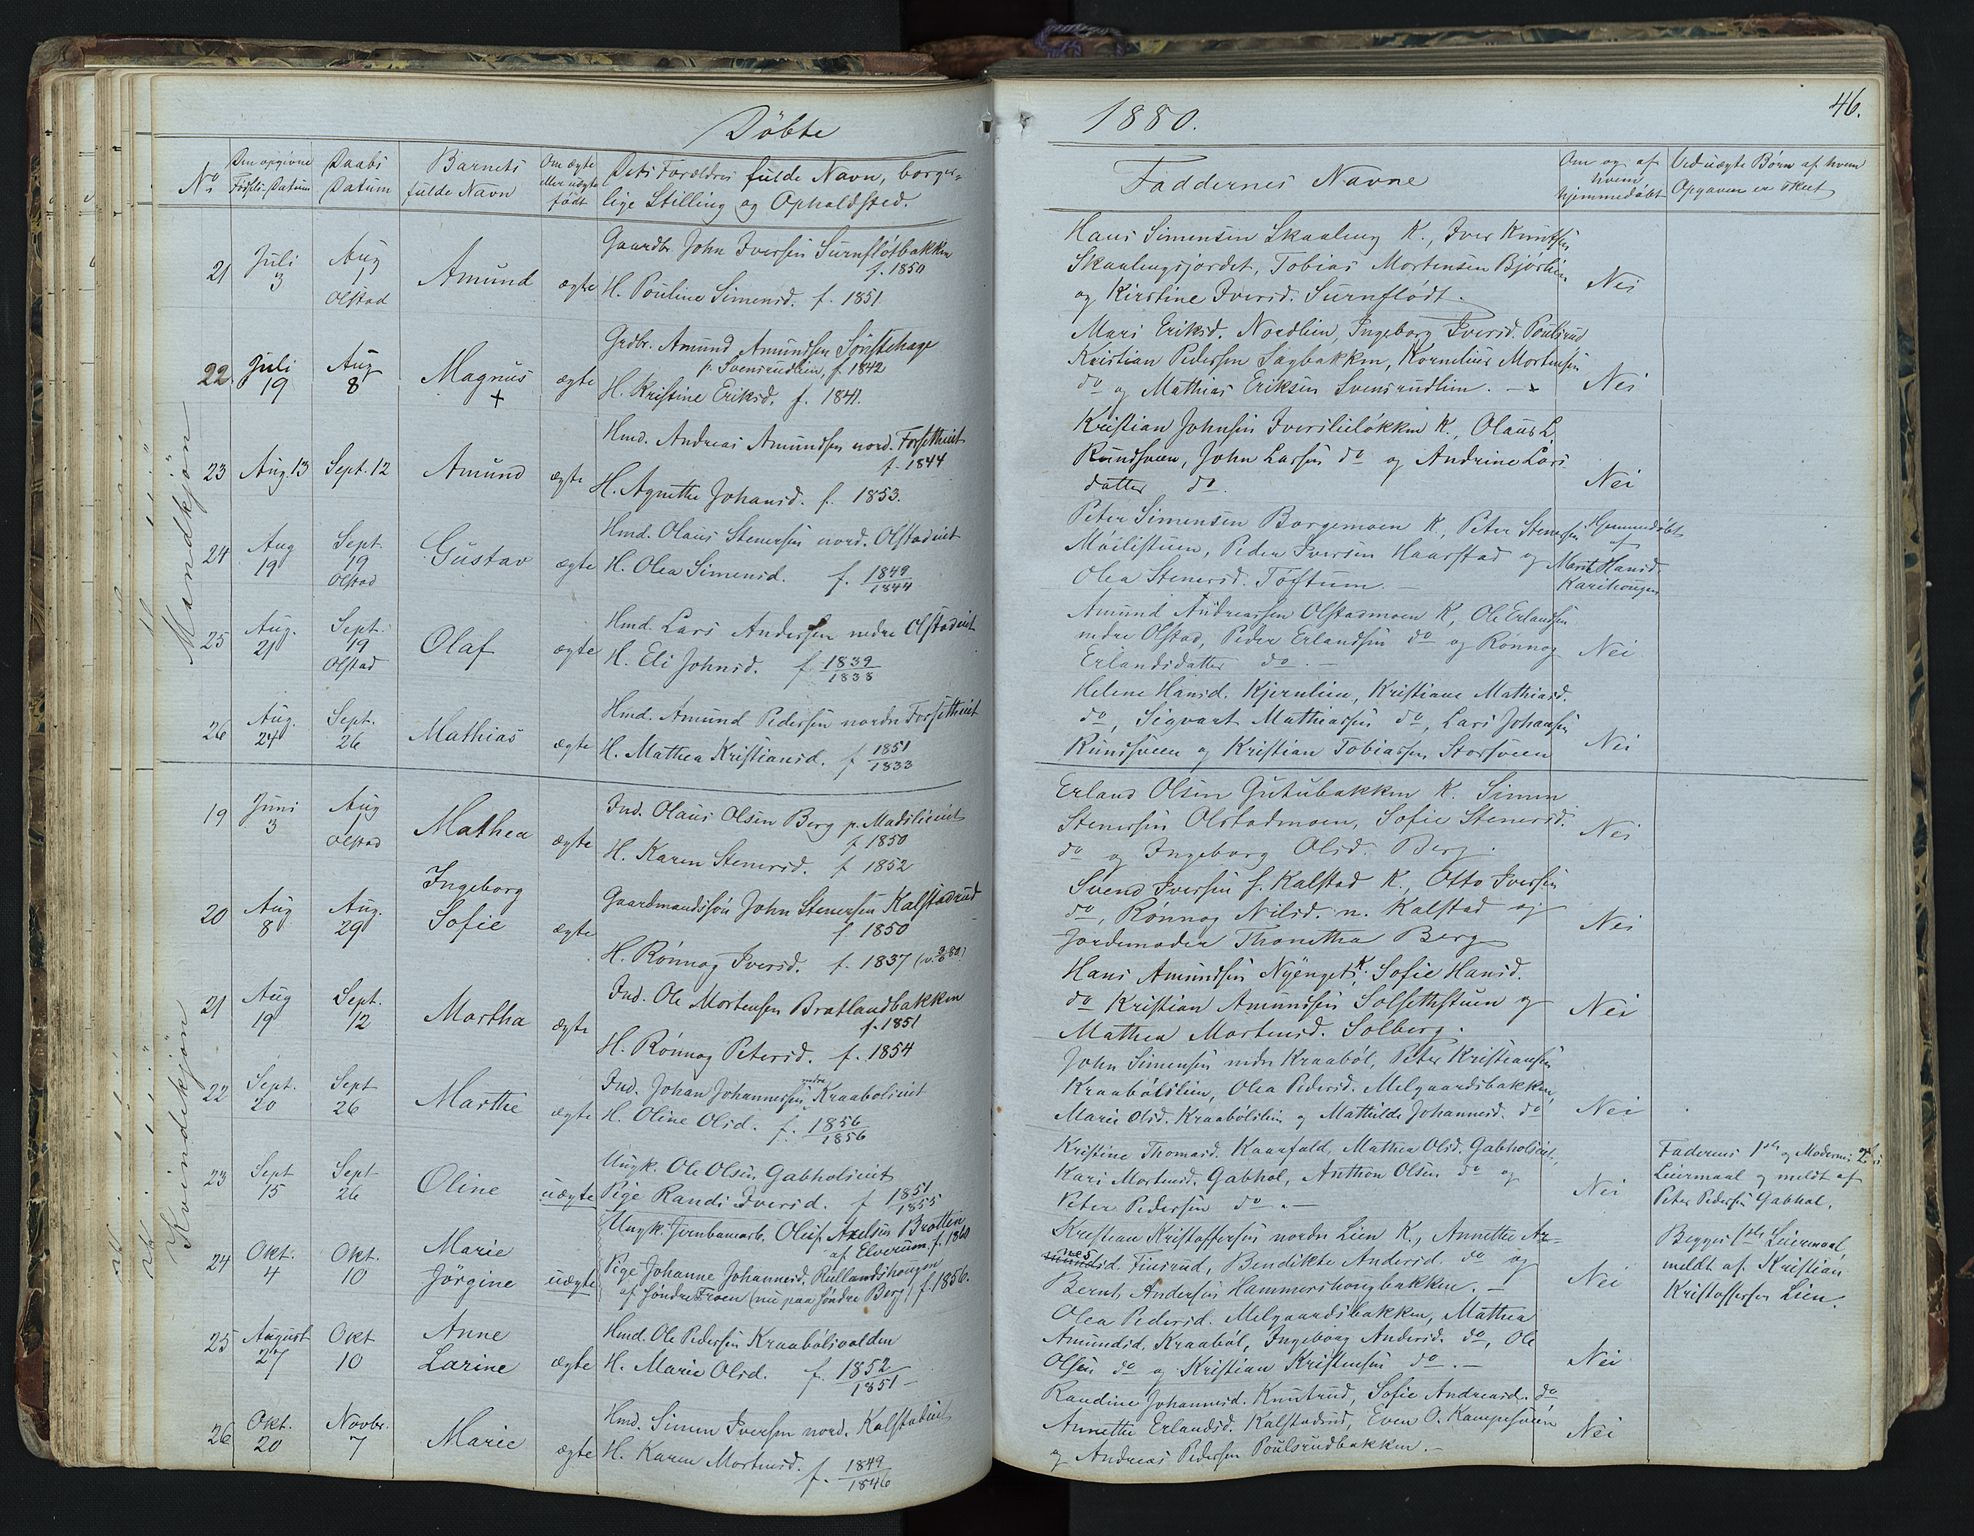 Døbte
No
Den opgivne Fødsels-Datum
Daabs Datum
Barnets fulde Navn
Om ægte eller uægte født
Dets Forældres fulde Navn, borgerlige Stilling og Opholdsted.
Mandkjøn
21 Juli 3 Aug 1 Olstad Amund ægte
Gaardbr John Iversen Surnflötbakken
f. 1850
H. Pouline Simensd. f. 1851
22. Juli 19 Aug 8 Magnus + ægte
Grdbr. Amund Amundsen Sønstehage
p. Svensrudlien, f. 1842
H. Kristine Eriksd. f. 1841.
23 Aug. 13 Sept. 12 Amund ægte
Hmd. Andreas Amundsen nord. Forsetheiet
f. 1844
H. Agnethe Johansd. f. 1853.
24 Aug 19 Sept. 19 Olstad Gustav ægte
Hmd. Olaus Stenersen nord. Olstadeiet
H. Olea Simensd. f. 1849
1844
25 Aug. 21 Sept. 19 Olstad Olaf ægte
Hmd. Lars Andersen nedre Olstadeiet
H. Eli Johnsd. f. 1839
1838
26 Aug. 24 Sept. 26 Mathias ægte
Hmd. Amund Pedersen nordre Forsetheiet
H. Mathea Kristiansd. f 1851
1833
Kvindekjøn
19 Juni 3 Aug 1 Olstad Mathea ægte
Ind. Olaus Olsen Berg p. Madslieiet
f. 1850
H. Karen Stenersd. f. 1852
20 Aug 8 Aug. 29 Ingeborg Sofie ægte
Gaardmandssøn John Stenersen Kalstadrud
f. 1850
H. Rønnog Iversd. f. 1837
21 Aug 19 Sept. 12 Martha ægte
Ind. Ole Mortensen Bratlandbakken
f. 1851
H. Rønnog Petersd. f. 1854
22 Sept. 20 Sept 26 Marthe ægte
Ind. Johan Johannessen nedre Kraaboleiet
H. Oline Olsd. f. 1856
1856
23 Sept 15 Sept 26 Oline uægte
Ungk. Ole Olsen Gabholseiet
Pige Randi Iversd. f 1851
1855
24 Okt. 4 Okt. 10 Marie Jörgine uægte
Ungk. Jernbanearb. Oluf Axelsen Bratten
af Elverum. f. 1860
Pige Johanne Johannesd. Rullandshougen
af søndre Froen (nu paa søndre Berg) f. 1856.
25 August 27 Okt 10 Anne Larine ægte
Hmd. Ole Pedersen Kraabölsvolden
H. Marie Olsd. f. 1852
1851
26 Okt. 20 Novbr. 7 Marie ægte
Hmd. Simen Iversen nord. Kalstadeiet
H. Karen Mortensd. f. 1849
1846
1880.
46.
Faddernes Navne
Om og af hvem hjemmedøbt
Ved uægte Børn af hvem Opgaven er skeet
Hans Simensen Skaaleng K., Iver Knutsen
Skaalengsjordet, Tobias Mortensen Bjørlien
og Kirstine Iversd. Surnflødt.
Nei
Mari Eriksd. Nordlien, Ingeborg Iversd. Poulsrud
Kristian Pedersen Sagbakken, Kornelius Mortensen
do og Mathias Eriksen Svensrudlien.
Nei
Kristian Johnsen Iverslieløkken K., Olaus L.
Rundsveen, John Larsen do og Andrine Lars
datter do.
Nei
Peter Simensen Borgemoen K, Peter Stenersen
Moilistuen, Peder Iversen Haarstad og
Olea Stenersd. Toftum.
Hjemmedøbt
af
Marit Hansd.
Karihougen
Amund Andreassen Olstadmoen K, Ole Erlandsen
nedre Olstad, Peder Erlandsen do og Rönnog
Erlandsdatter do.
Nei
Helene Hansd. Kjernlien, Kristiane Mathiasd.
do Sigvart Mathiassen do, Lars Johansen
Rundsveen og Kristian Tobiassen Storsveen
Nei
Erland Olsen Gutubakken K. Simen
Stenersen Olstadmoen, Sofie Stenersd.
do og Ingeborg Olsd. Berg.
Nei
Svend Iversen s. Kalstad K., Otto Iversen
do, Rønnog Nilsd. n. Kalstad og
Jordemoder Thonetha Berg
Nei
Hans Amundsen Nyenget K. Sofie Hansd.
do Kristian Amundsen Solsethstuen og
Mathea Mortensd. Solberg.
Nei
John Simensen nedre Kraaböl, Peter Kristiansen
Kraabölslien, Olea Pedersd. Melgaardsbakken,
Marie Olsd. Kraabölslien og Mathilde Johannesd. do
Nei
Kristine Thomasd. Kaarfald, Mathea Olsd. Gabholseiet,
Kari Mortensd. Gabhol, Anthon Olsen do og
Peter Pedersen do.
Nei
Faderens 1ste og Moderens 2det
Leiermaal og meldt af
Peter Pedersen Gabhol.
Kristian Kristoffersen nordre Lien K., Annette Ar-
nesd. Finsrud, Bendikte Andersd. do og
Bernt Andersen Hammershougbakken.
Nei
Begges 1ste Leiermaal,
meldt af Kristian
Kristoffersen Lien.
Olea Pedersd. Melgaardsbakken, Mathea
Amundsd. Kraabøl, Ingeborg Andersd. do, Ole
Olsen do og Kristian Kristensen do.
Nei
Randine Johannesd. Knutrud, Sofie Andreasd. do
Annethe Erlandsd. Kalstadrud, Even O. Kampesveen
og Andreas Pedersen Poulsrudbakken.
Nei